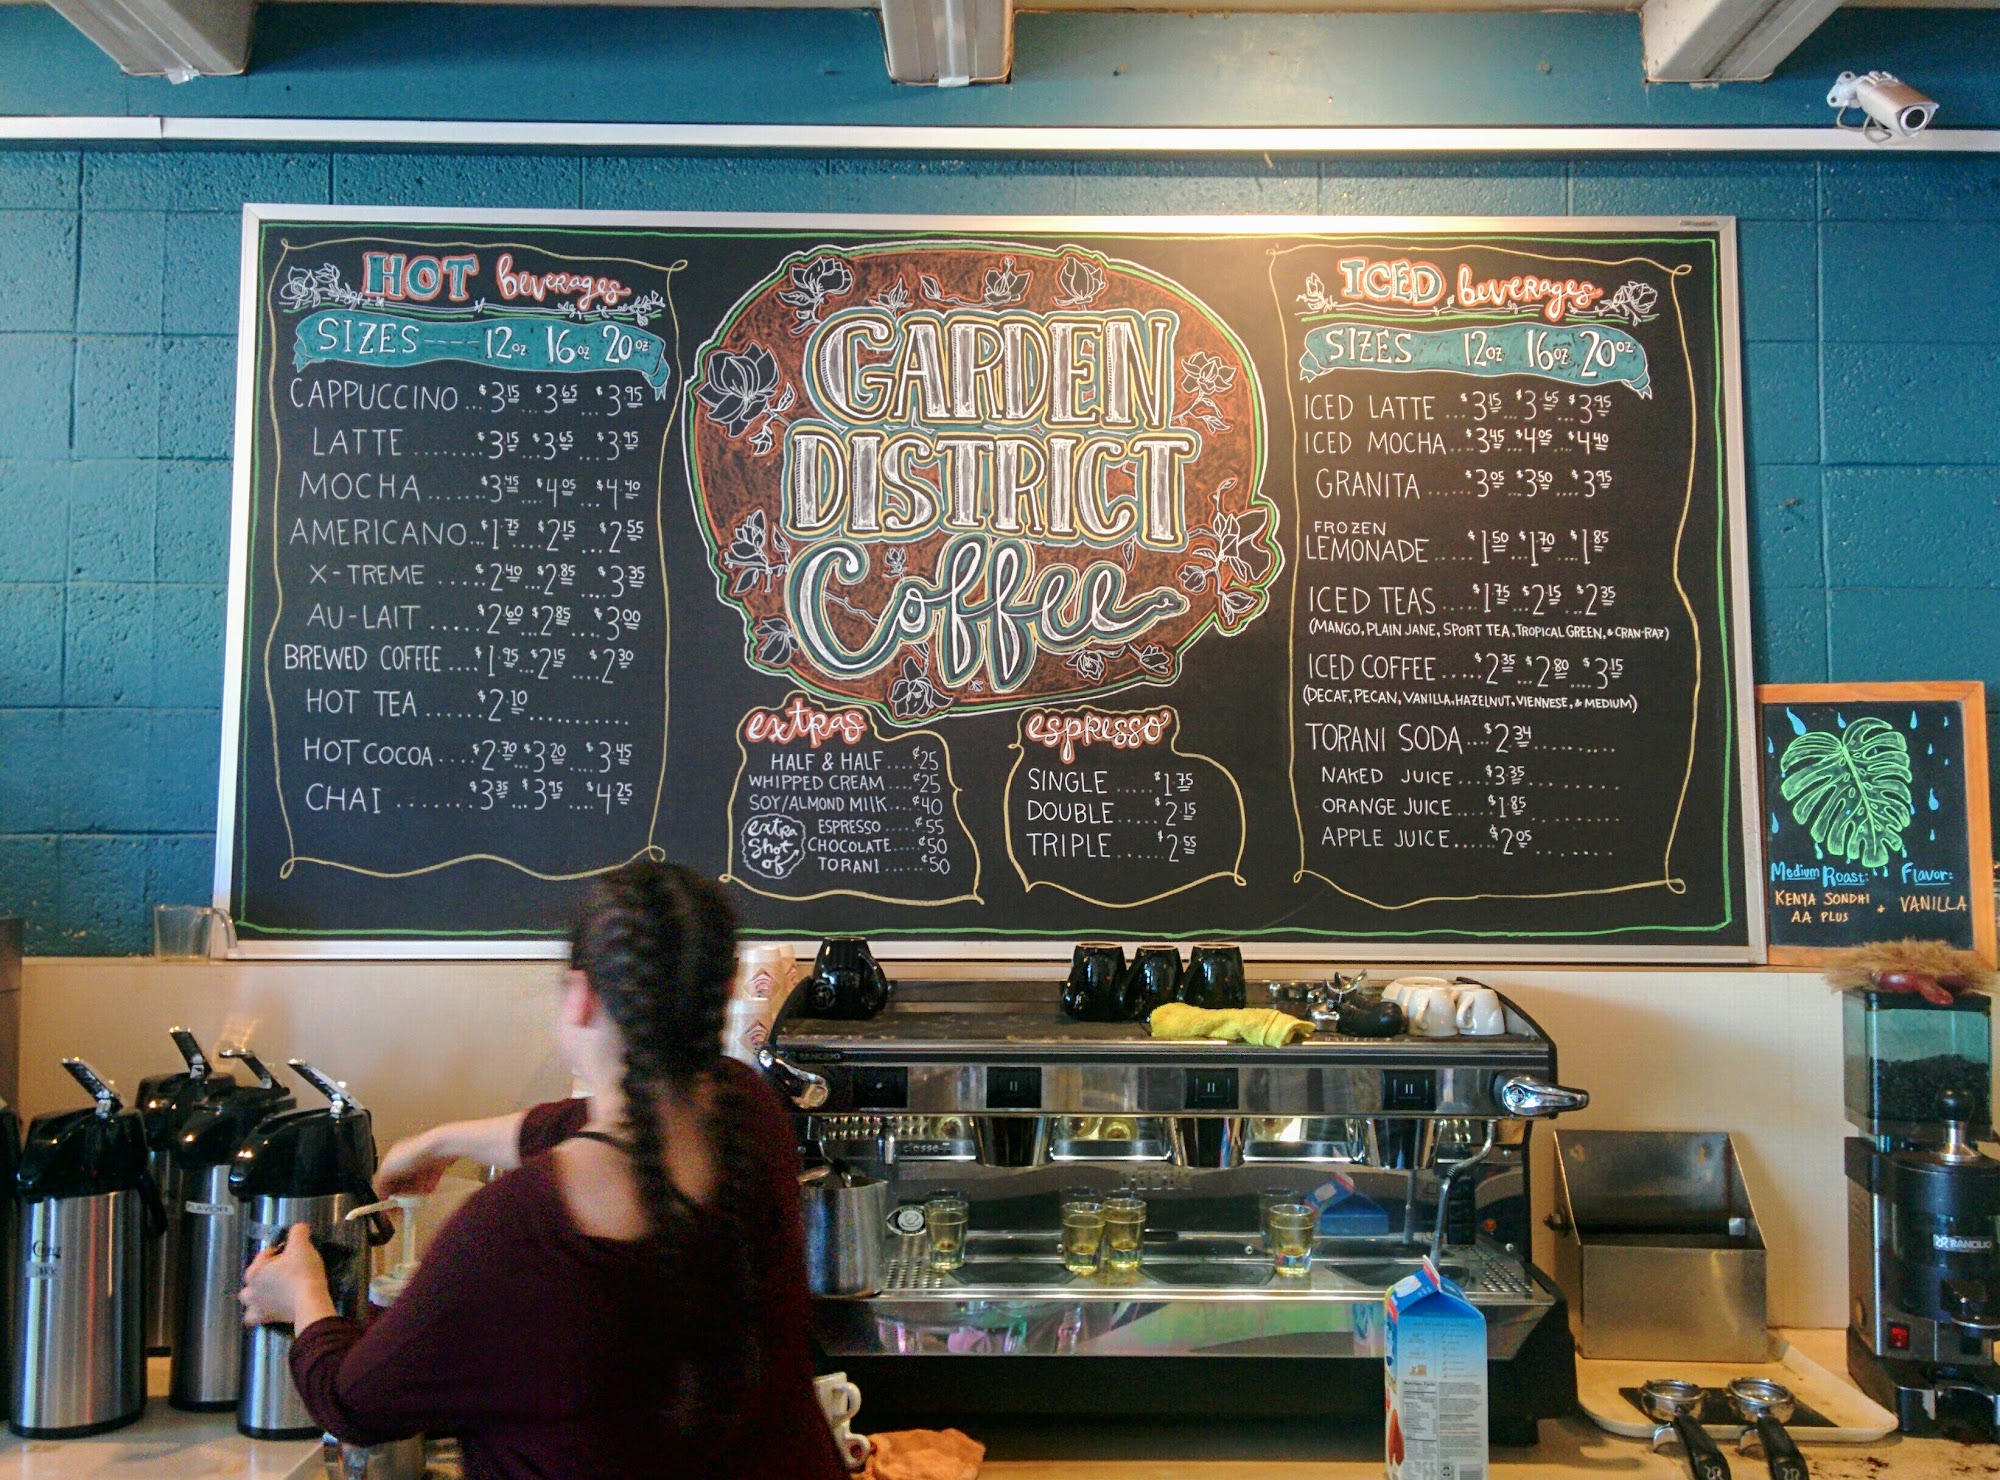 HOT beverages
SIZES ---- 12oz 16oz 20oz
CAPPUCCINO ... $3.15 ... $3.65 ... $3.95
LATTE ....... $3.15 ... $3.65 ... $3.95
MOCHA ...... $3.45 ... $4.05 ... $4.40
AMERICANO ... $1.75 .... $2.15 ... $2.55
X-TREME ..... $2.40 ... $2.85 .... $3.35
AU-LAIT ..... $2.60 $2.85 .... $3.00
BREWED COFFEE .... $1.95 ... $2.15 .... $2.30
HOT TEA ...... $2.10 ...........
HOT COCOA ... $2.70 ... $3.20 ... $3.45
CHAI ........ $3.35 ... $3.95 .... $4.25
GARDEN
DISTRICT
Coffee
extras
HALF & HALF .... ¢25
WHIPPED CREAM ... ¢25
SOY/ALMOND MILK .... ¢40
extra
shot
of
ESPRESSO ..... ¢55
CHOCOLATE .... ¢50
TORANI ...... ¢50
espresso
SINGLE ..... $1.75
DOUBLE ..... $2.15
TRIPLE ..... $2.55
ICED beverages
SIZES 12oz 16oz 20oz
ICED LATTE ... $3.15 ... $3.65 ... $3.95
ICED MOCHA ... $3.45 ... $4.05 ... $4.40
GRANITA ..... $3.05 ... $3.50 .... $3.95
FROZEN
LEMONADE ..... $1.50 ... $1.70 ... $1.85
ICED TEAS .... $1.75 ... $2.15 ... $2.35
(MANGO, PLAIN JANE, SPORT TEA, TROPICAL GREEN, & CRAN-RAZ)
ICED COFFEE .... $2.35 ... $2.80 .... $3.15
(DECAF, PECAN, VANILLA, HAZELNUT, VIENNESE, & MEDIUM)
TORANI SODA ... $2.34 ..........
NAKED JUICE .... $3.35 ..........
ORANGE JUICE .... $1.85 ..........
APPLE JUICE ..... $2.05 ......
Medium Roast:
KENYA SONDHI
AA PLUS
+
Flavor:
VANILLA
RANCILIO
classe-7
FLAVOR
RANCILIO